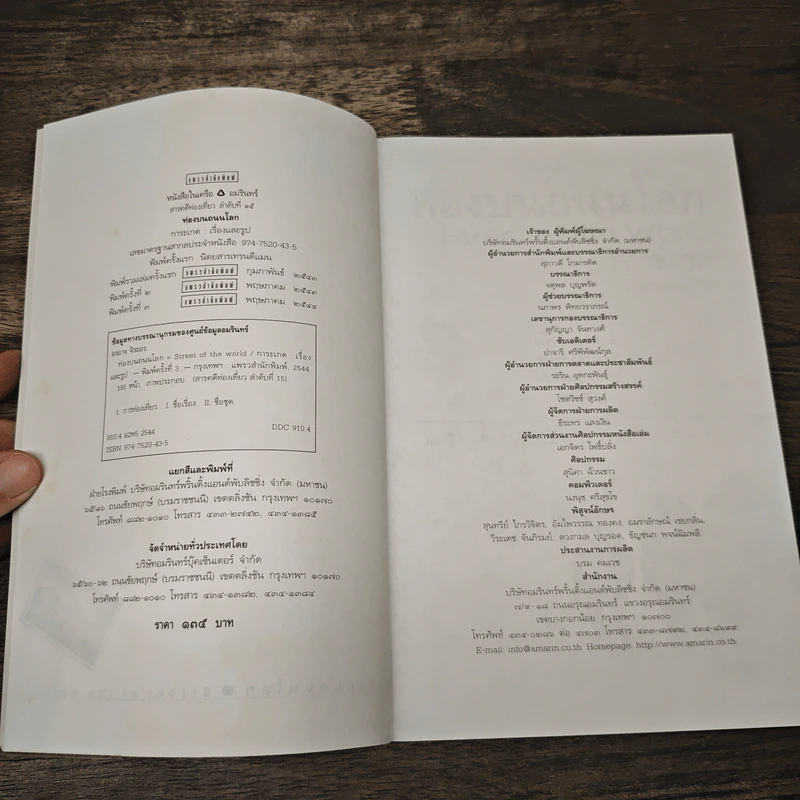 แพรวสำนักพิมพ์
หนังสือในเครือ อมรินทร์
สารคดีท่องเที่ยว ลำดับที่ ๑๕
ท่องบนถนนโลก
การะเกต : เรื่องและรูป
เลขมาตรฐานสากลประจำหนังสือ 974-7520-43-5
พิมพ์ครั้งแรก นิตยสารเทรนดีแมน
พิมพ์รวมเล่มครั้งแรก แพรวสำนักพิมพ์ กุมภาพันธ์ ๒๕๔๓
พิมพ์ครั้งที่ ๒ แพรวสำนักพิมพ์ พฤษภาคม ๒๕๔๓
พิมพ์ครั้งที่ ๓ แพรวสำนักพิมพ์ พฤษภาคม ๒๕๔๔
ข้อมูลทางบรรณานุกรมของศูนย์ข้อมูลอมรินทร์
องอาจ จิระอร
ท่องบนถนนโลก = Street of the world / การะเกต : เรื่อง
และรูป — พิมพ์ครั้งที่ 3. — กรุงเทพฯ : แพรวสำนักพิมพ์, 2544
191 หน้า ภาพประกอบ (สารคดีท่องเที่ยว ลำดับที่ 15)
1. การท่องเที่ยว I. ชื่อเรื่อง. II. ชื่อชุด.
910.4 อ2ท5 2544 DDC 910.4
ISBN 974-7520-43-5
แยกสีและพิมพ์ที่
ฝ่ายโรงพิมพ์ บริษัทอมรินทร์พริ้นติ้งแอนด์พับลิชชิ่ง จำกัด (มหาชน)
๖๕/๑๖ ถนนชัยพฤกษ์ (บรมราชชนนี) เขตตลิ่งชัน กรุงเทพฯ ๑๐๑๗๐
โทรศัพท์ ๘๘๒-๑๐๑๐ โทรสาร ๔๓๓-๒๗๔๒, ๔๓๔-๑๓๘๕
จัดจำหน่ายทั่วประเทศโดย
บริษัทอมรินทร์บุ๊คเซ็นเตอร์ จำกัด
๖๕/๖๐-๖๒ ถนนชัยพฤกษ์ (บรมราชชนนี) เขตตลิ่งชัน กรุงเทพฯ ๑๐๑๗๐
โทรศัพท์ ๘๘๒-๑๐๑๐ โทรสาร ๔๓๔-๑๓๘๒, ๔๓๔-๑๓๘๔
ราคา ๑๓๕ บาท
เจ้าของ ผู้พิมพ์ผู้โฆษณา
บริษัทอมรินทร์พริ้นติ้งแอนด์พับลิชชิ่ง จำกัด (มหาชน)
ผู้อำนวยการสำนักพิมพ์และบรรณาธิการอำนวยการ
สุภาวดี โกมารทัต
บรรณาธิการ
จตุพล บุญพรัด
ผู้ช่วยบรรณาธิการ
นภาพร พิทยวราภรณ์
เลขานุการกองบรรณาธิการ
สุกัญญา จันทวงศ์
ซับเอดิเตอร์
ปาจารี ศรีพิพัฒน์กุล
ผู้อำนวยการฝ่ายการตลาดและประชาสัมพันธ์
ระริน อุทกะพันธุ์
ผู้อำนวยการฝ่ายศิลปกรรมสร้างสรรค์
โชตวิชช์ สุวงศ์
ผู้จัดการฝ่ายการผลิต
ธีระทร แสงเงิน
ผู้จัดการส่วนงานศิลปกรรมหนังสือเล่ม
เอกจิตร โพธิ์ปลั่ง
ศิลปกรรม
สุนิศา ฉ้วนชาว
คอมพิวเตอร์
นงนุช ศรีสุขโข
พิสูจน์อักษร
สุนทรีย์ ไกรวิจิตร, อัมไพวรรณ ทองคง, อมราลักษณ์ เชยกลิ่น,
วีระเดช จันภิรมย์, ดวงกมล บุญรอด, ธัญชนก พจน์ฉิมพลี
ประสานงานการผลิต
บรม คมเวช
สำนักงาน
บริษัทอมรินทร์พริ้นติ้งแอนด์พับลิชชิ่ง จำกัด (มหาชน)
๗/๙-๑๘ ถนนอรุณอมรินทร์ แขวงอรุณอมรินทร์
เขตบางกอกน้อย กรุงเทพฯ ๑๐๗๐๐
โทรศัพท์ ๔๓๔-๐๒๘๖ ต่อ ๔๗๐๓ โทรสาร ๔๓๓-๘๗๙๒, ๔๓๔-๘๖๙๙
E-mail: info@amarin.co.th Homepage: http://www.amarin.co.th